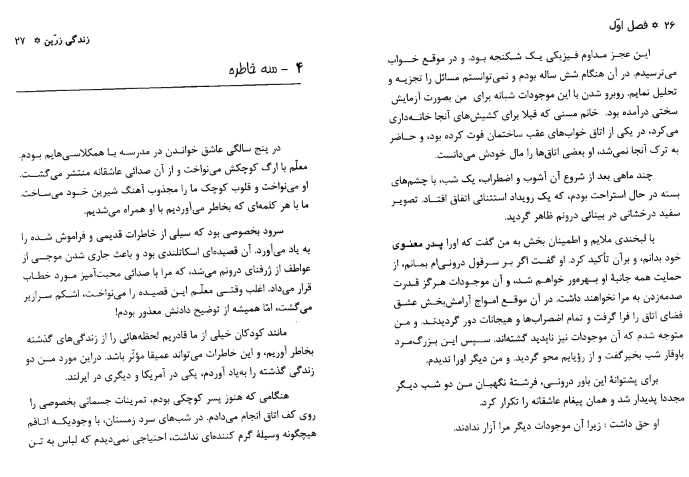 ۲۶ * فصل اوّل
این عجز مداوم فیزیکی یک شکنجه بود. و در موقع خواب
می‌ترسیدم. در آن هنگام شش ساله بودم و نمی‌توانستم مسائل را تجزیه و
تحلیل نمایم. روبرو شدن با این موجودات شبانه برای من بصورت آزمایش
سختی درآمده بود. خانم مسنی که قبلا برای کشیش‌های آنجا خانه‌داری
می‌کرد، در یکی از اتاق خواب‌های عقب ساختمان فوت کرده بود، و حاضر
به ترک آنجا نمی‌شد، او بعضی اتاق‌ها را مال خودش می‌دانست.
چند ماهی بعد از شروع آن آشوب و اضطراب، یک شب، با چشم‌های
بسته در حال استراحت بودم، که یک رویداد استثنائی اتفاق افتاد. تصویر
سفید درخشانی در بینائی درونم ظاهر گردید.
با لبخندی ملایم و اطمینان بخش به من گفت که اورا پدر معنوی
خود بدانم، و برآن تأکید کرد. او گفت اگر بر سرقول درونی‌ام بمانم، از
حمایت همه جانبهٔ او بهره‌ور خواهم شد، و آن موجودات هرگز قدرت
صدمه‌زدن به مرا نخواهند داشت. در آن موقع امواج آرامش‌بخش عشق
فضای اتاق را فرا گرفت و تمام اضضراب‌ها و هیجانات دور گردیدند. و من
متوجه شدم که آن موجودات نیز ناپدید گشته‌اند. سپس این بزرگ‌مرد
باوقار شب بخیرگفت و از رؤیایم محو گردید. و من دیگر اورا ندیدم.
برای پشتوانهٔ این باور درونی، فرشتهٔ نگهبان من دو شب دیگر
مجددا پدیدار شد و همان پیغام عاشقانه را تکرار کرد.
او حق داشت : زیرا آن موجودات دیگر مرا آزار ندادند.
زندگی زرّین * ۲۷
۴ - سه خاطره
در پنج سالگی عاشق خواندن در مدرسه با همکلاسی‌هایم بودم.
معلّم با ارگ کوچکش می‌نواخت و از آن صدائی عاشقانه منتشر می‌گشت.
او می‌نواخت و قلوب کوچک ما را مجذوب آهنگ شیرین خود می‌ساخت.
ما با هر کلمه‌ای که بخاطر می‌آوردیم با او همراه می‌شدیم.
سرود بخصوصی بود که سیلی از خاطرات قدیمی و فراموش شده را
به یاد می‌آورد. آن قصیده‌ای اسکاتلندی بود و باعث جاری شدن موجی از
عواطف از ژرفنای درونم می‌شد، که مرا با صدائی محبت‌آمیز مورد خطاب
قرار می‌داد. اغلب وقتی معلّم این قصیده را می‌نواخت، اشکم سرازیر
می‌گشت، امّا همیشه از توضیح دادنش معذور بودم!
مانند کودکان خیلی از ما قادریم لحظه‌هائی را از زندگی‌های گذشته
بخاطر آوریم، و این خاطرات می‌تواند عمیقا مؤثّر باشد. دراین مورد من دو
زندگی گذشته را به‌یاد آوردم، یکی در آمریکا و دیگری در ایرلند.
هنگامی که هنوز پسر کوچکی بودم، تمرینات جسمانی بخصوصی را
روی کف اتاق انجام می‌دادم. در شب‌های سرد زمستان، با وجودیکه اتاقم
هیچگونه وسیلهٔ گرم کننده‌ای نداشت، احتیاجی نمی‌دیدم که لباس به تن